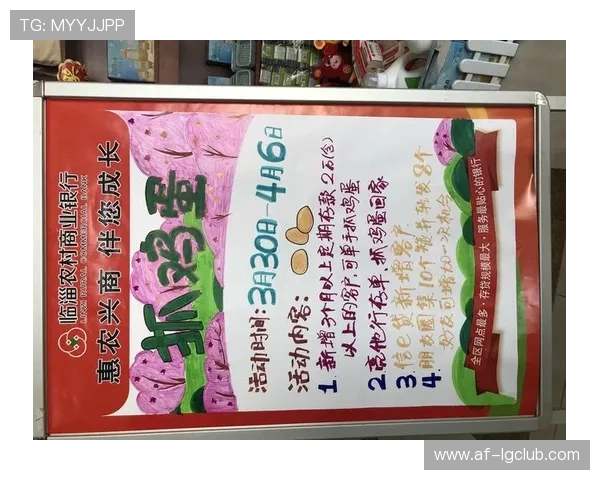 TG: MYYJJPP
临淄农村商业银行
LINZI RURAL COMMERCIAL BANK
惠农兴商 伴您成长
抓鸡蛋
活动时间：3月30日-4月6日
活动内容：
1. 新增3个月以上定期存款2万(含)
以上的客户可单手抓鸡蛋
2. 亮他行存单、抓鸡蛋回家
3. 信e贷新增客户
4. 朋友圈集10个赞并转发8个
好友可增加一次机会
全区网点最多·存贷规模最大·服务最贴心的银行
www.af-lgclub.com